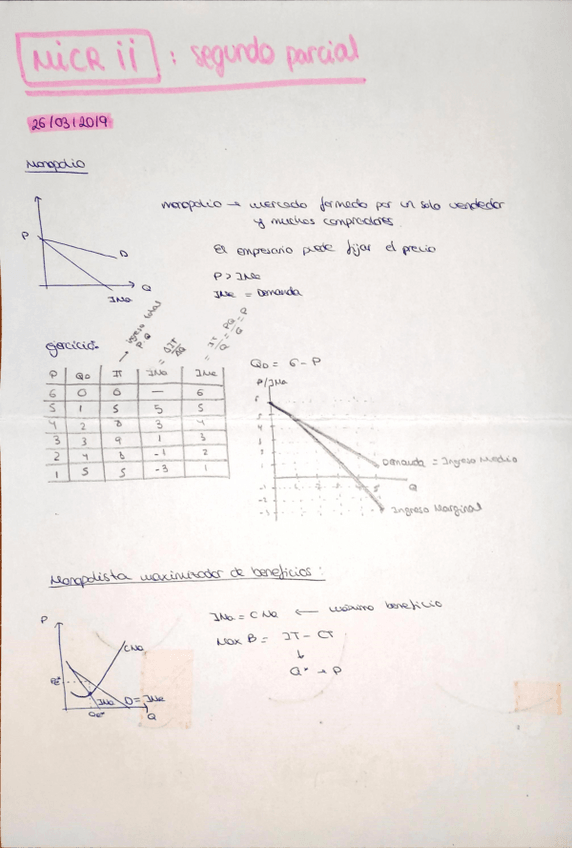 MICR ii : segundo parcial
26/03/2019
Monopolio
monopolio → mercado formado por un solo vendedor
y muchos compradores.
El empresario puede fijar el precio
P > IMa
IMe = Demanda
P
D
Q
IMa
ejercicio.
→ Ingreso total P·Q
= ΔIT/ΔQ
= IT/Q = PQ/Q = P
P QD IT IMa IMe
6 0 0 — 6
5 1 5 5 5
4 2 8 3 4
3 3 9 1 3
2 4 8 -1 2
1 5 5 -3 1
QD = 6 - P
P/IMa
Demanda = Ingreso Medio
Q
Ingreso Marginal
Monopolista maximizador de beneficios:
P
CMa
IMa D = IMe
Q
IMa = CMa ← máximo beneficio
Max B = IT - CT
↓
Q* → P